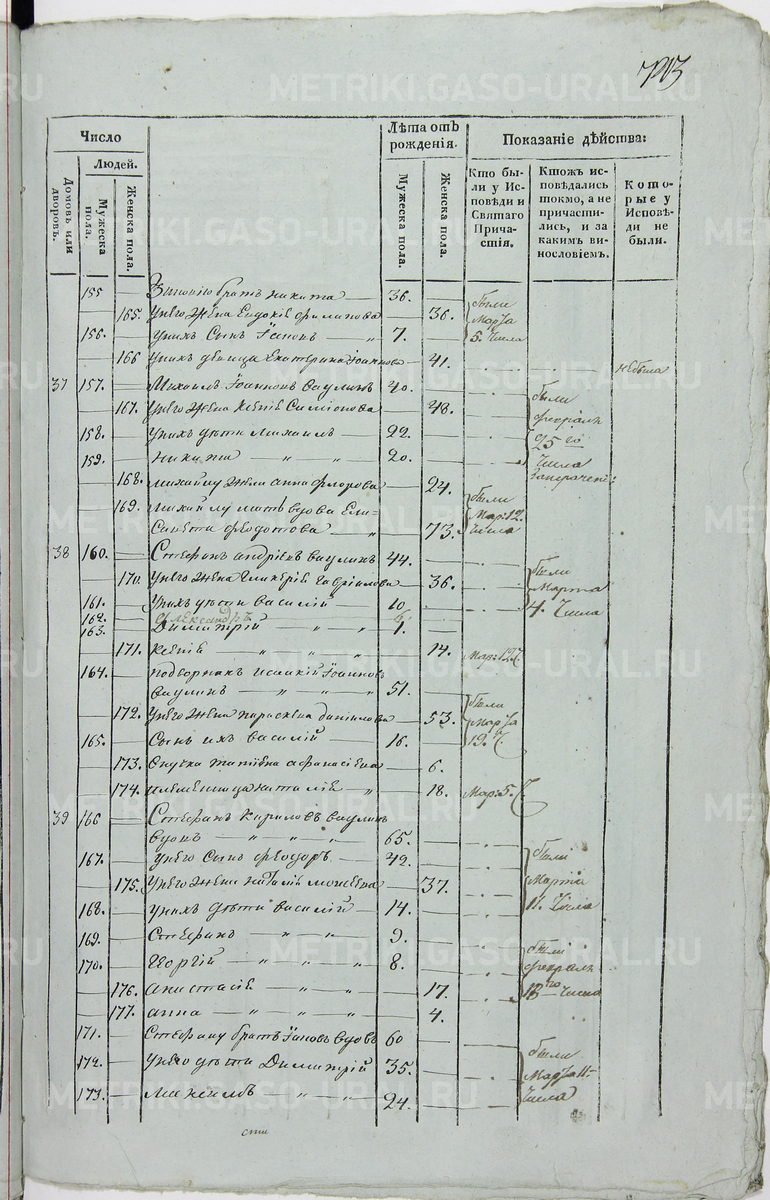 703
Число
Лѣта отъ рожденія.
Показаніе дѣйства:
Людей.
Домовъ или дворовъ.
Мужеска пола.
Женска пола.
Мужеска пола.
Женска пола.
Кто были у Исповѣди и Святаго Причастія.
Ктожъ исповѣдались токмо, а не причастились, и за какимъ винословіемъ.
Которые у Исповѣди не были.
155 братъ никита 36.
165. Унего жена Евдокіе филипова 36. были
Марта
156. Унихъ Сынъ Іоаннъ 7. 5. Числа
166 Унихъ девица Екатерина Іоаннова 41. небыла
37 157. Михаилъ Іоанновъ ваулинъ 40. были
167. Унего жена Ксеніе Симіонова 48. февраля
158. Унихъ дѣти михаилъ 22. 25 го
159. никита " " 20. Числа
168. михаилу жена анна флорова 24.
169. михаилу мать вдова Ели- были
савета федотова 73. Мар: 12. Числа
38 160. Стефанъ андріевъ ваулинъ 44. были
170. Унего жена Гликеріе Гавріилова 36. Марта
161. Унихъ дѣти василій 10. 4. Числа
162. Александръ 6
163. Димитрій " " 1.
171. Ксеніе " " " 14. Мар: 12 Ч.
164. подворникъ Исаакій Іоанновъ
ваулинъ " " " 51. были
172. Унего жена параскева данилова 53. Марта
165. Сынъ ихъ василій 16. 12. Ч.
173. внучка татіана афанасіева 6.
174. племянница наталіе " 18. Мар: 5. Ч.
39 166 Стефанъ Кириловъ ваулинъ
вдовъ " " " 65.
167. Унего Сынъ феодоръ 42. были
175. Унего жена наталіе моисеева 37. Марта
168. Унихъ дѣти василій 14. 11. Числа
169. Стефанъ " " 9. были
170. Георгій " " 8. февраля
176. анастасіе " " 17. 18 го Числа
177. анна " " " 4.
171. Стефану братъ Іоаннъ вдовъ 60
172. Унего дѣти Димитрій 35. были
Марта 11
173. михаилъ " " 24. Числа
METRIKI.GASO-URAL.RU